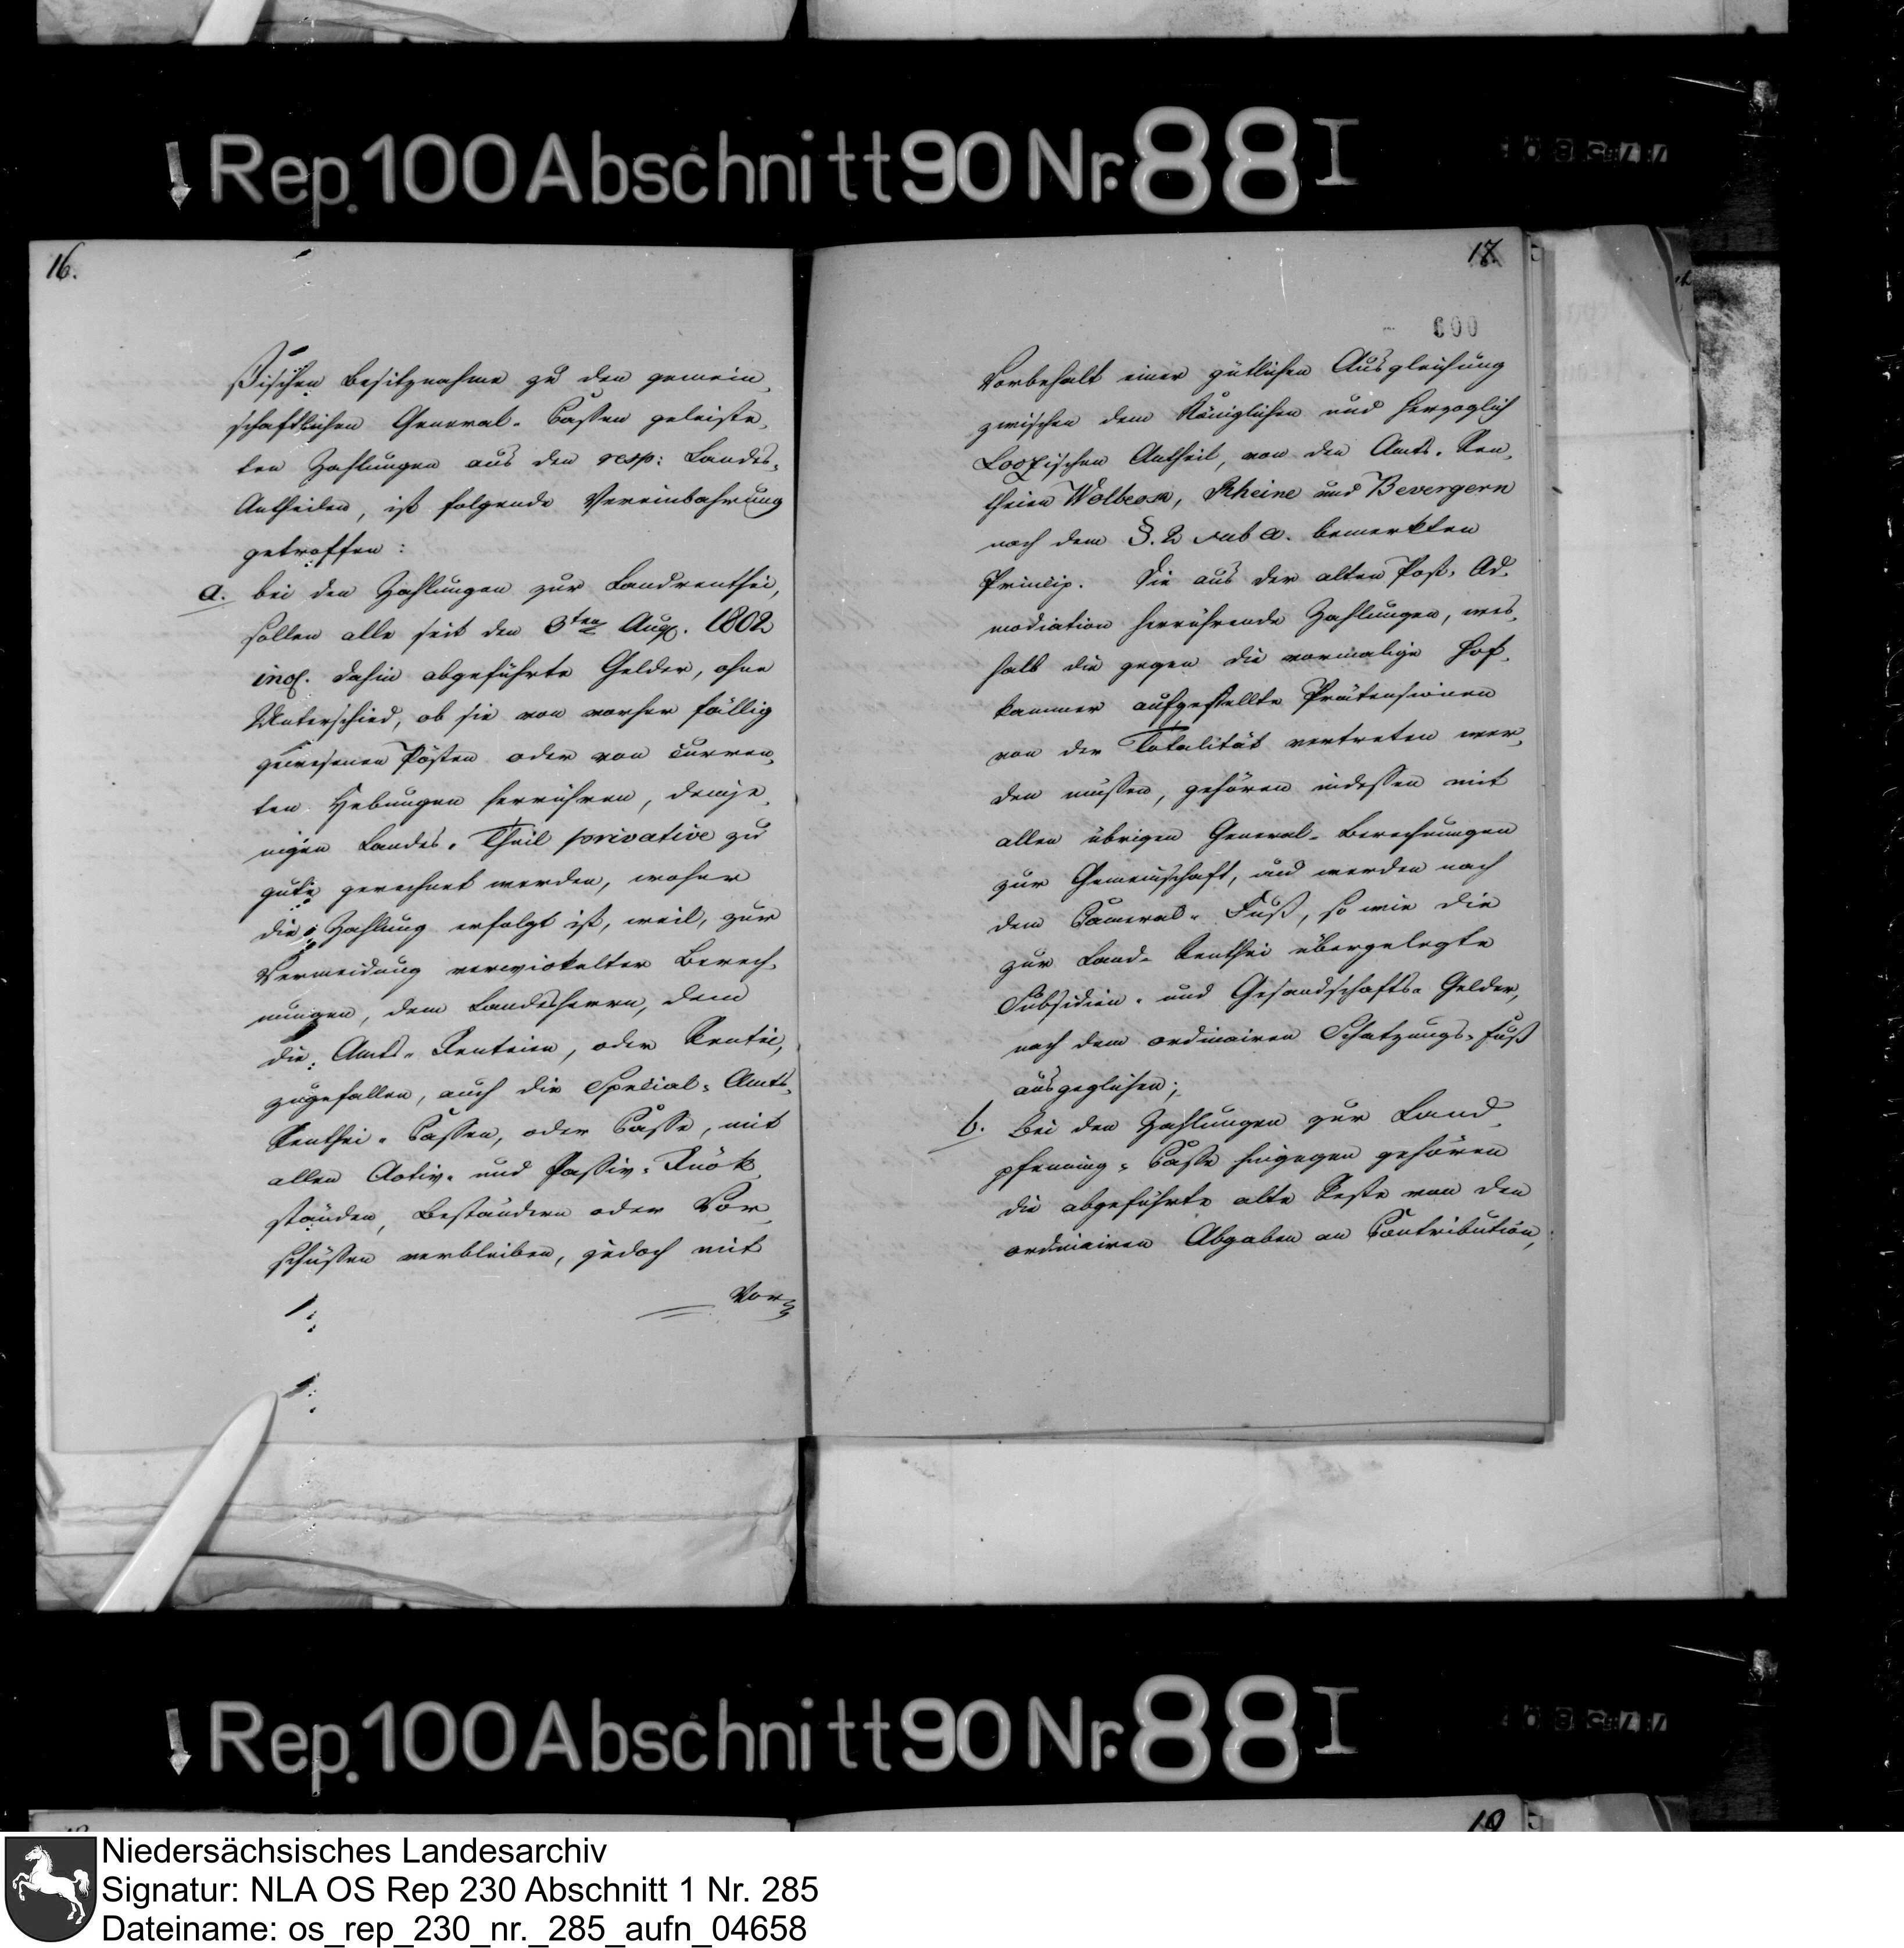 Rep. 100 Abschnitt 90 Nr. 88 I
16.
ßischen Besitznahme zu den gemein-
schaftlichen General-Cassen geleiste-
ten Zahlungen aus den resp: Landes-
Antheilen, ist folgende Vereinbahrung
getroffen:
a. bei den Zahlungen zur Landrenthei,
sollen alle seit den 3ten Aug. 1802
incl. dahin abgeführte Gelder, ohne
Unterschied, ob sie von vorher fällig
gewesenen Pösten oder von curren-
ten Hebungen herrühren, demje-
nigen Landes-Theil privative zu
gute gerechnet werden, woher
die Zahlung erfolgt ist, weil, zur
Vermeidung verwickelter Berech-
nungen, dem Landesherrn, dem
die Amts-Renteien, oder Rentei,
zugefallen, auch die Special-Amts-
Renthei-Cassen, oder Casse, mit
allen Activ- und Passiv-Rück-
ständen, Beständen oder Vor-
schüssen verbleiben, jedoch mit
Vor-
17.
600
Vorbehalt einer gütlichen Ausgleichung
zwischen dem Königlichen und Herzoglich
Loozischen Antheil, von den Amts-Ren-
theien Wolbeck, Rheine und Bevergern
nach dem §. 2 sub a. bemerkten
Princip. Die aus der alten Post-Ad-
modiation herrührende Zahlungen, wes-
halb die gegen die vormalige Hof-
kammer aufgestellte Prätensionen
von der Totalität vertreten wer-
den müssen, gehören indessen mit
allen übrigen General-Berechnungen
zur Gemeinschaft, und werden nach
dem Cameral-Fuß, so wie die
zur Land-Renthei übergelegte
Subsidien- und Gesandschafts-Gelder,
nach dem ordinairen Schatzungs-Fuß
ausgeglichen;
b. Bei den Zahlungen zur Land-
pfenning-Casse hingegen gehören
die abgeführte alte Reste von den
ordinairen Abgaben an Contribution,
Rep. 100 Abschnitt 90 Nr. 88 I
19
Niedersächsisches Landesarchiv
Signatur: NLA OS Rep 230 Abschnitt 1 Nr. 285
Dateiname: os_rep_230_nr._285_aufn_04658